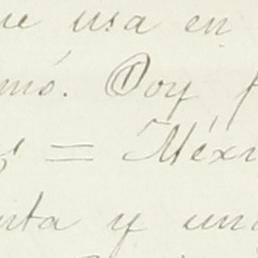 ue usa en
mó. Doy f
s = Méxi
nta y un